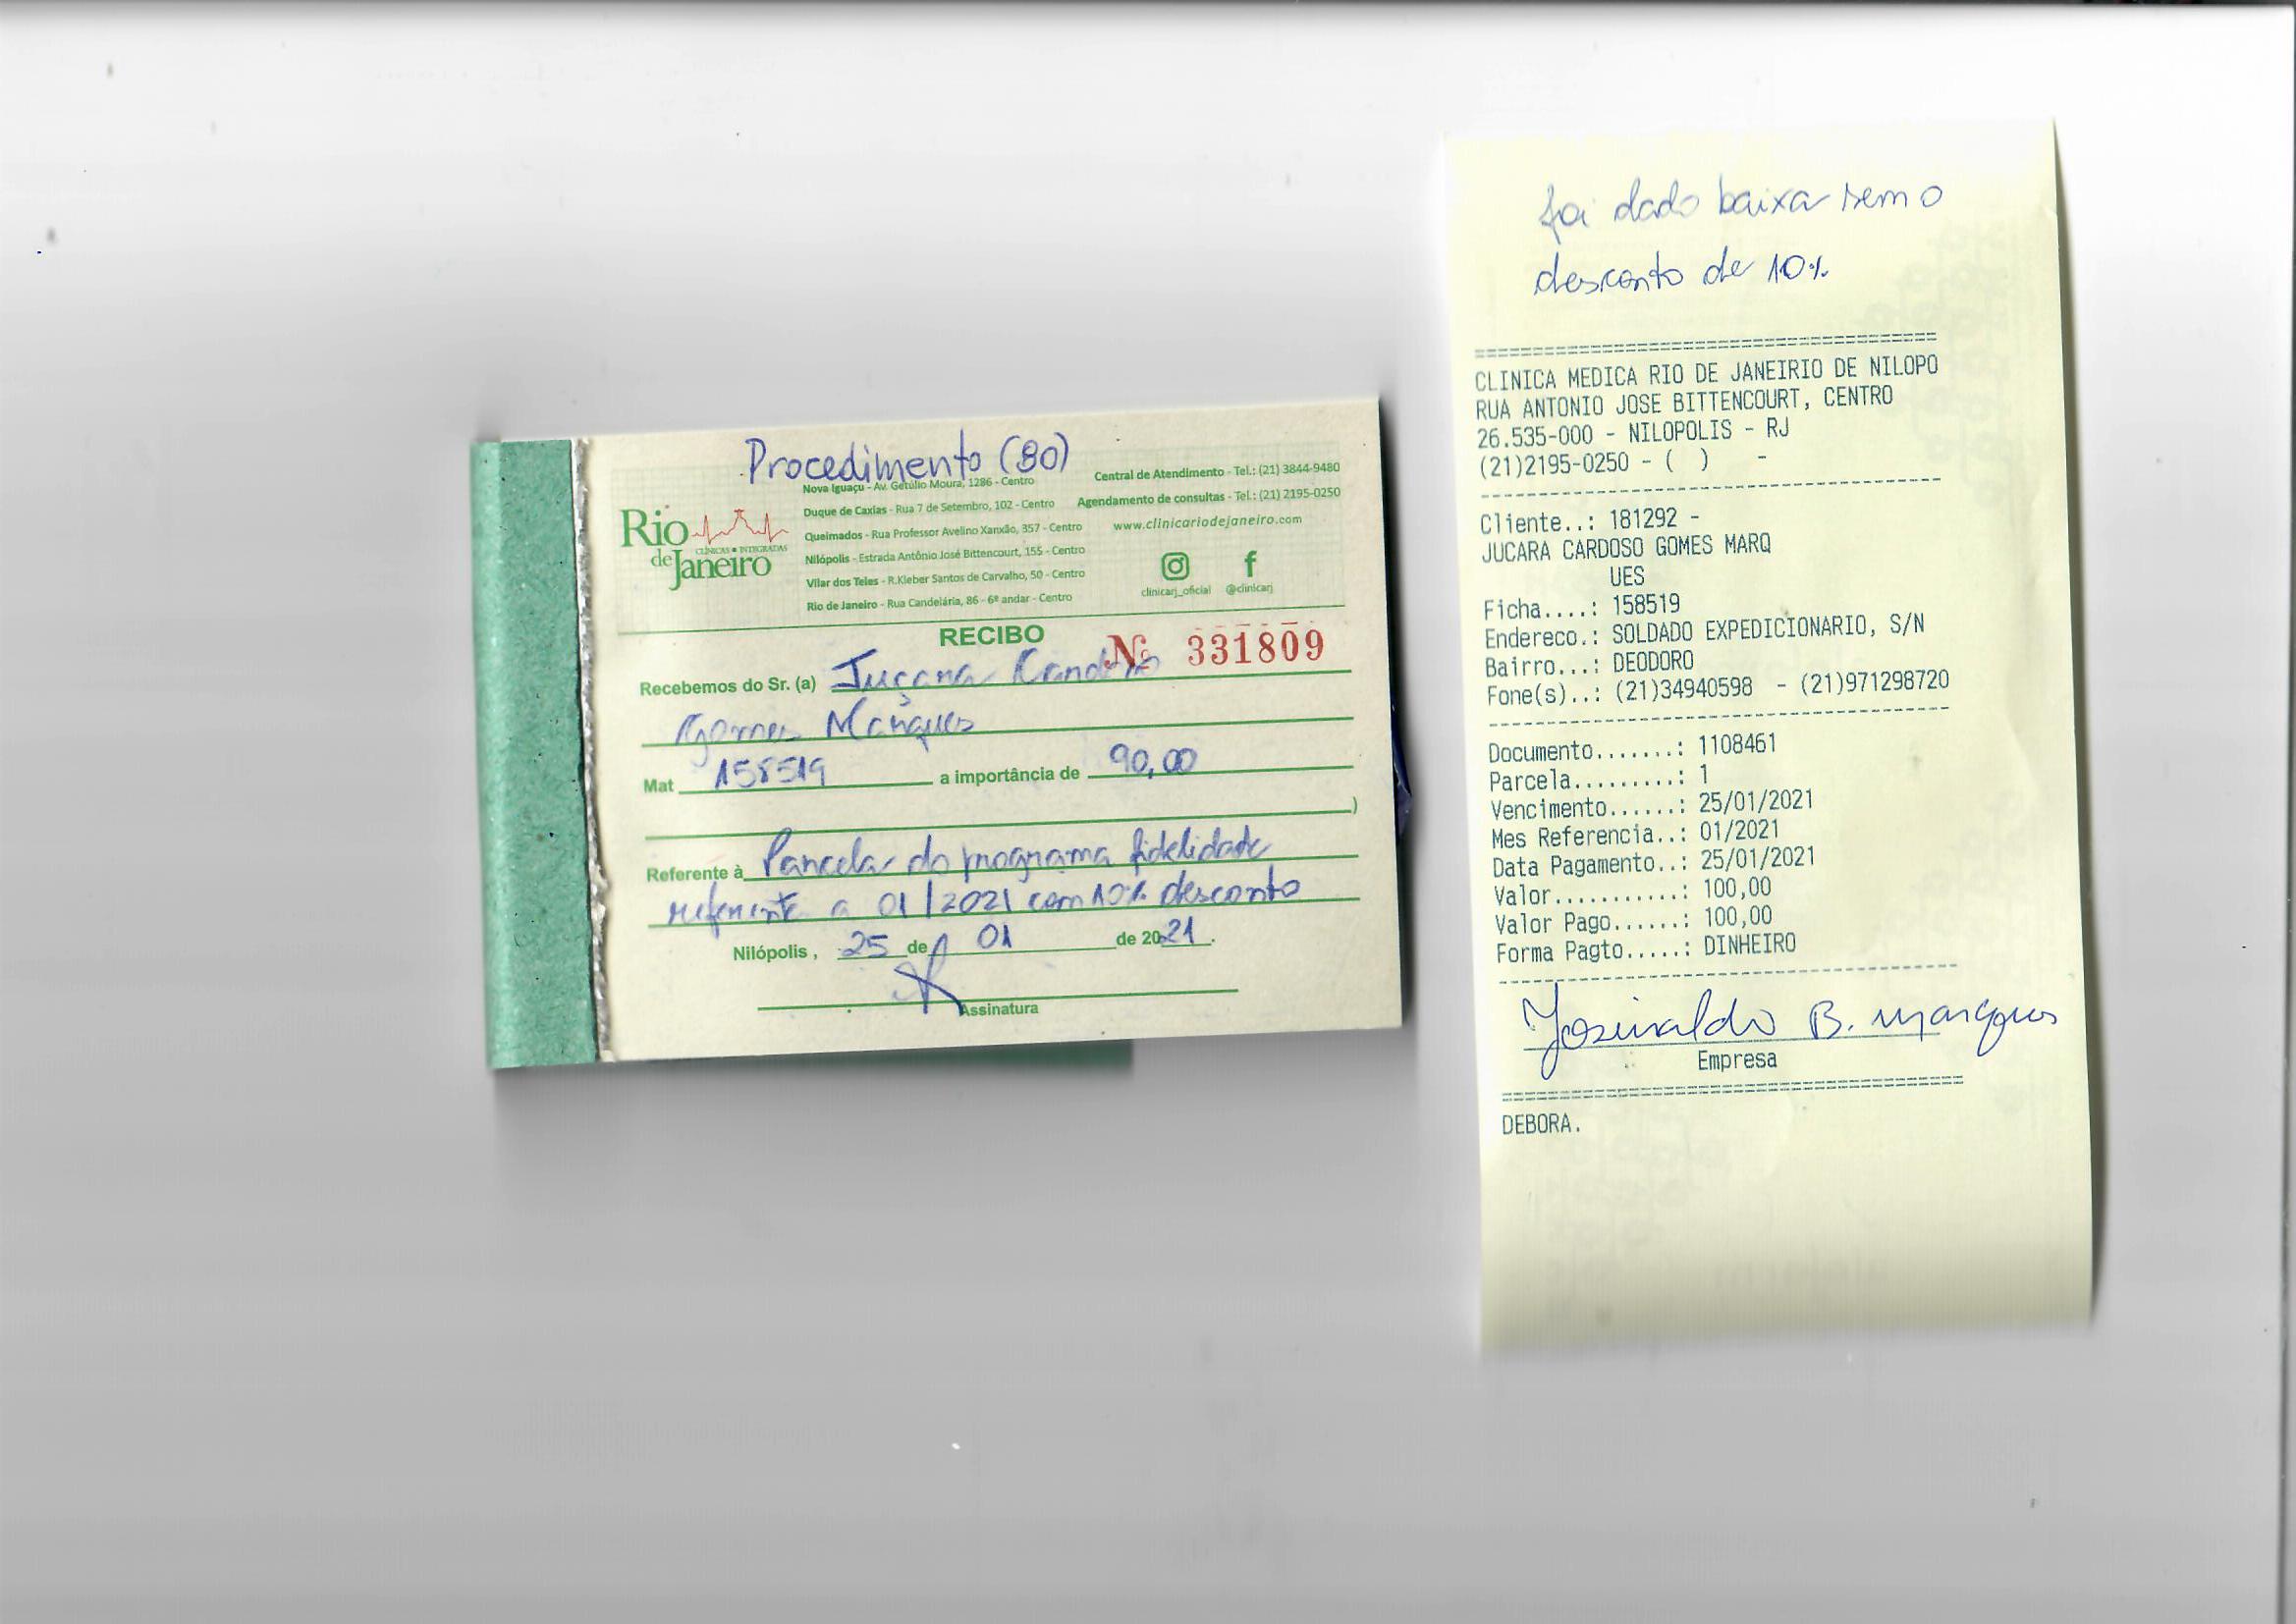 Procedimento (80)
Rio
de Janeiro
CLÍNICAS INTEGRADAS
Nova Iguaçu - Av. Getúlio Moura, 1286 - Centro
Duque de Caxias - Rua 7 de Setembro, 102 - Centro
Queimados - Rua Professor Avelino Xanxão, 357 - Centro
Nilópolis - Estrada Antônio José Bittencourt, 155 - Centro
Vilar dos Teles - R.Kleber Santos de Carvalho, 50 - Centro
Rio de Janeiro - Rua Candelária, 86 - 6º andar - Centro
Central de Atendimento - Tel.: (21) 3844-9480
Agendamento de consultas - Tel.: (21) 2195-0250
www.clinicariodejaneiro.com
clinicarj_oficial @clinicarj
RECIBO
Nº 331809
Recebemos do Sr. (a) Juçara Cardoso
Gomes Marques
Mat 158519 a importância de 90,00
)
Referente à Parcela do programa fidelidade
referente a 01/2021 com 10% desconto
Nilópolis, 25 de 01 de 2021.
Assinatura
foi dado baixa sem o
desconto de 10%
=======================================
CLINICA MEDICA RIO DE JANEIRIO DE NILOPO
RUA ANTONIO JOSE BITTENCOURT, CENTRO
26.535-000 - NILOPOLIS - RJ
(21)2195-0250 - ( ) -
---------------------------------------
Cliente..: 181292 -
JUCARA CARDOSO GOMES MARQ
UES
Ficha....: 158519
Endereco.: SOLDADO EXPEDICIONARIO, S/N
Bairro...: DEODORO
Fone(s)..: (21)34940598 - (21)971298720
---------------------------------------
Documento.......: 1108461
Parcela.........: 1
Vencimento......: 25/01/2021
Mes Referencia..: 01/2021
Data Pagamento..: 25/01/2021
Valor...........: 100,00
Valor Pago......: 100,00
Forma Pagto.....: DINHEIRO
---------------------------------------
Josivaldo B. Marques
Empresa
=======================================
DEBORA.